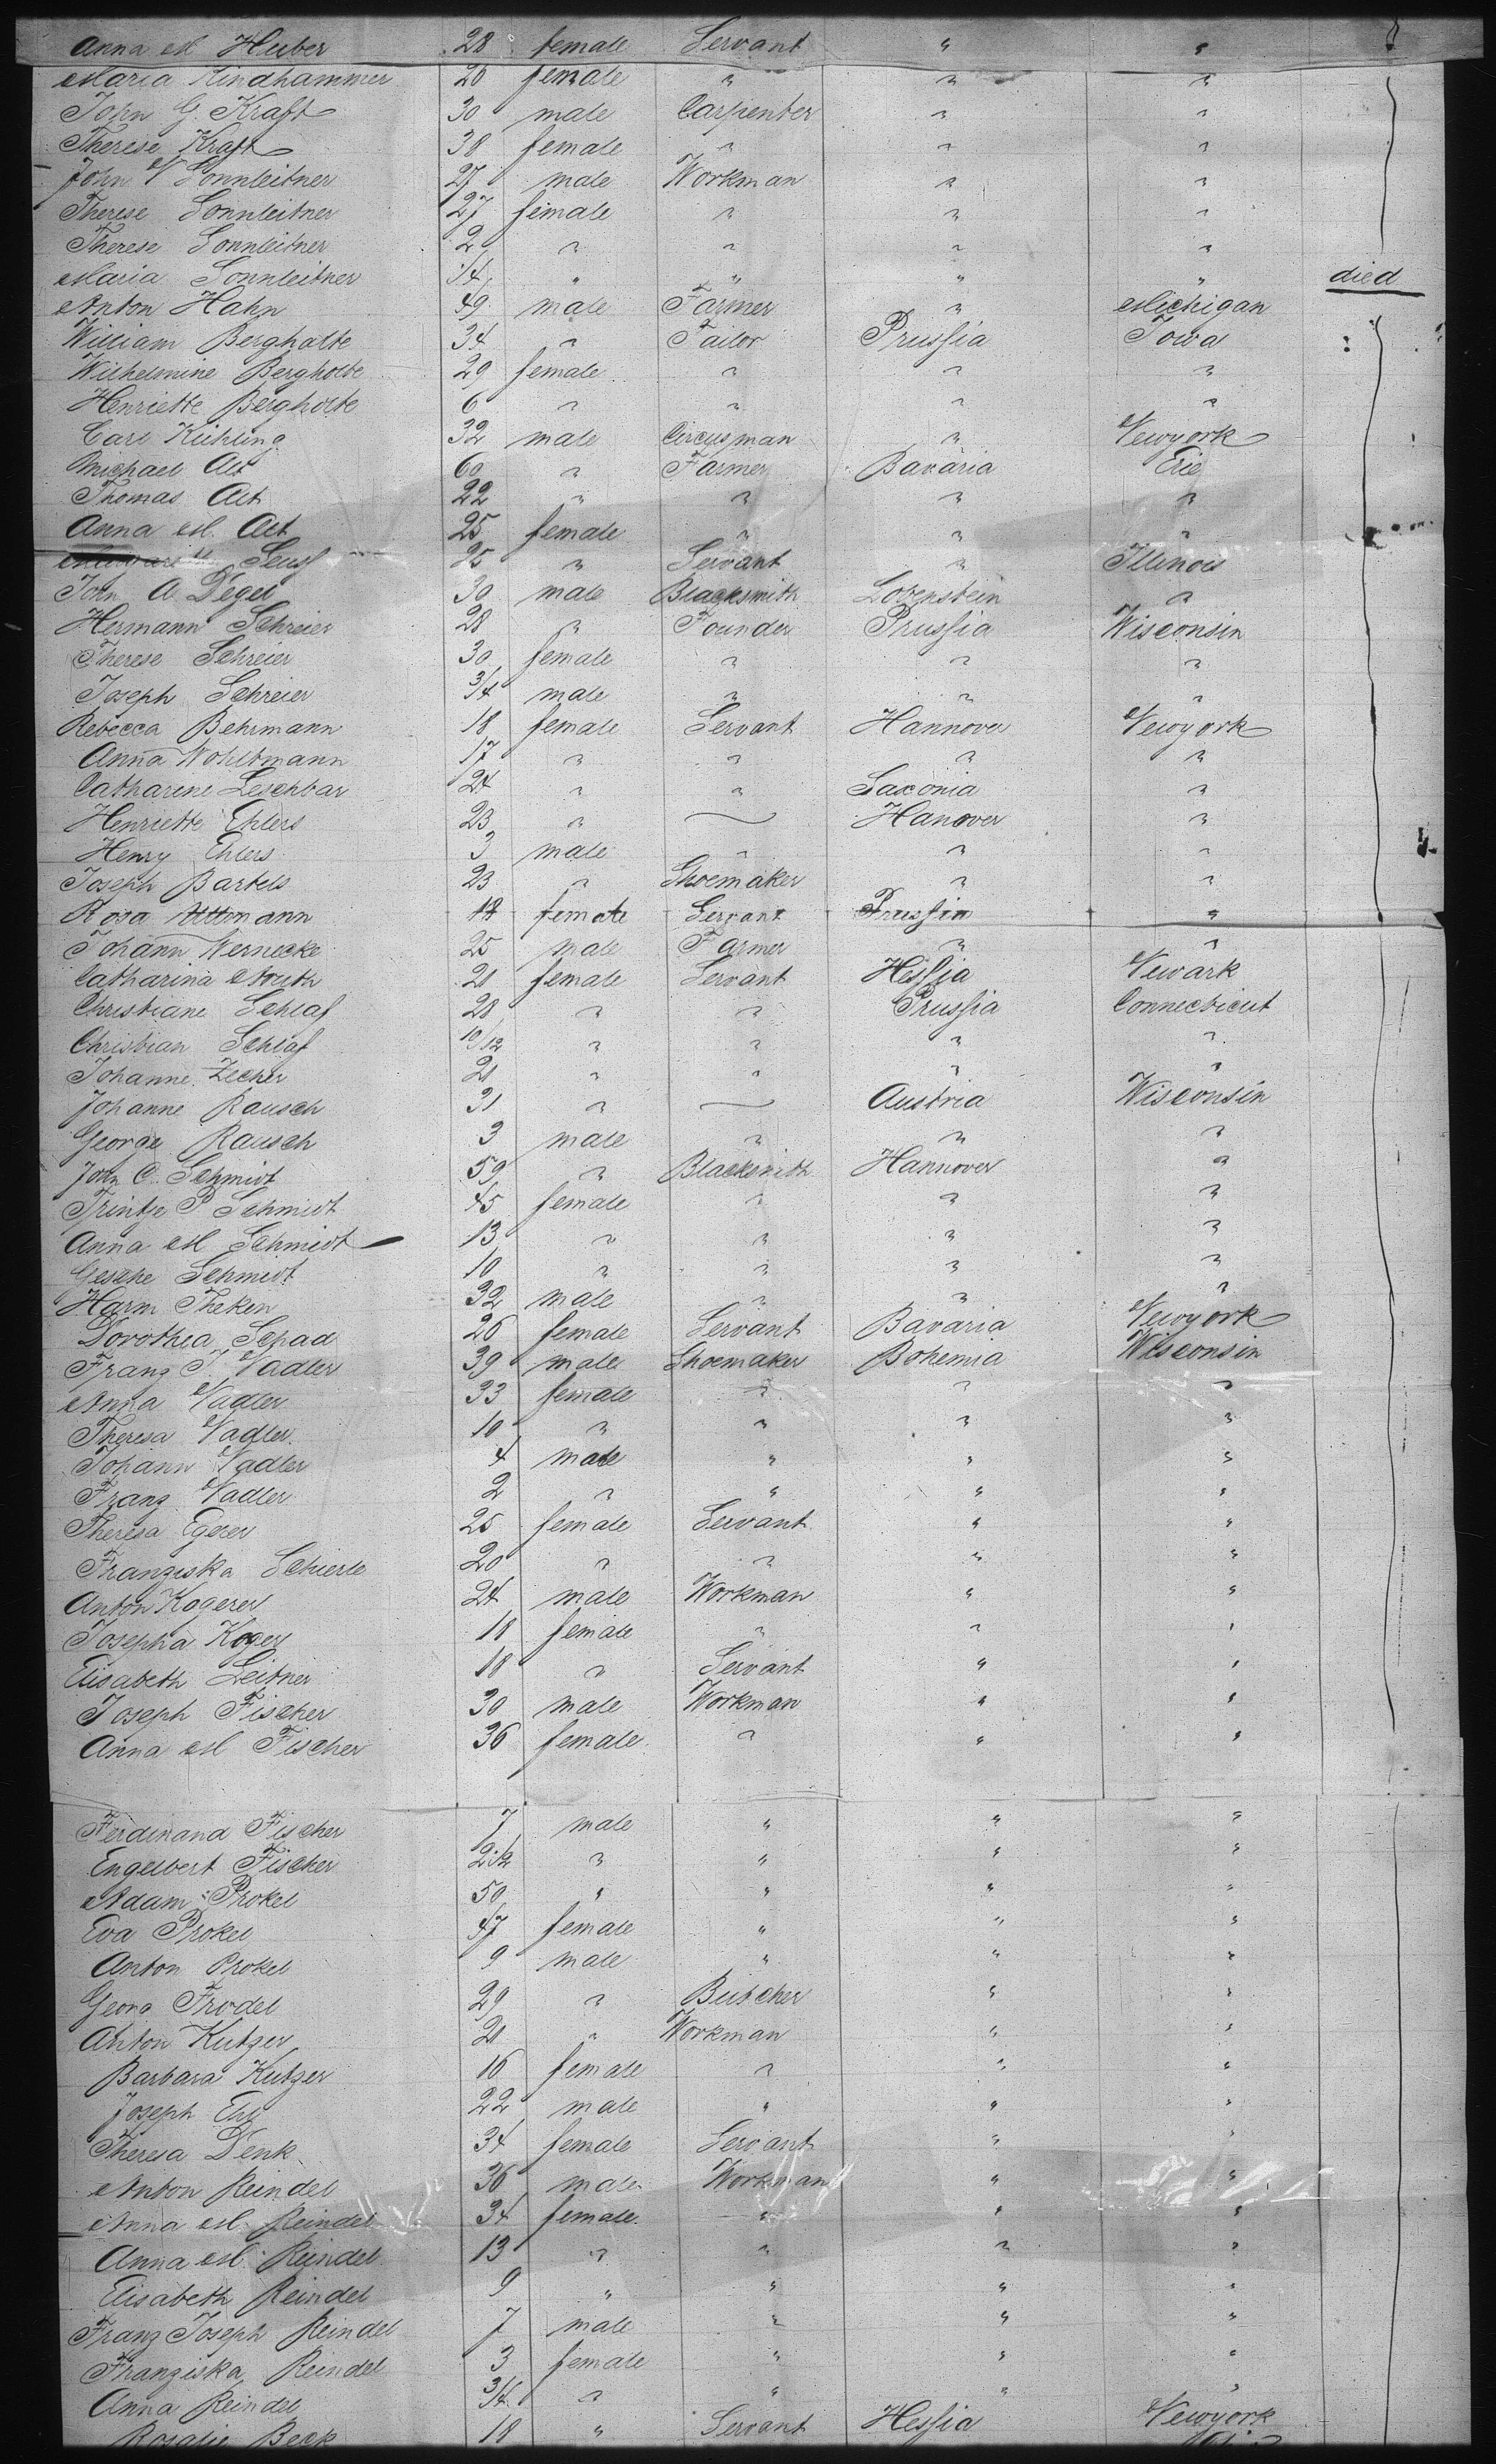 Anna M Huber 28 female Servant " "
Maria Kindhammer 20 female " " "
John G. Kraft 30 male Carpenter " "
Therese Kraft 38 female " " "
John N Sonnleitner 27 male Workman " "
Therese Sonnleitner 27 female " " "
Therese Sonnleitner 2 " " " "
Maria Sonnleitner 3/4 " " " " died
Anton Hahn 49 male Farmer " Michigan
William Bergholte 34 " Tailor Prussia Iowa
Wilhelmine Bergholte 29 female " " "
Henriette Bergholte 6 " " " "
Carl Kühling 32 male Circusman " Newyork
Michael Alt 60 " Farmer Bavaria Erie
Thomas Alt 22 " " " "
Anna M. Alt 25 female " " "
Seuf 25 " Servant " Illinois
John A. Degel 30 male Blacksmith Lobenstein "
Hermann Schreier 28 " Founder Prussia Wisconsin
Therese Schreier 30 female " " "
Joseph Schreier 3/4 male " " "
Rebecca Behrmann 18 female Servant Hannover Newyork
Anna Wohltmann 17 " " " "
Catharine Leschbar 24 " " Saxonia "
Henriette Ehlers 23 " — Hanover "
Henry Ehlers 3 male " " "
Joseph Bartels 23 " Shoemaker " "
Rosa Uttmann 18 female Servant Prussia "
Johann Wernecke 25 male Farmer " "
Catharina Nuth 21 female Servant Hessia Newark
Christiane Schlaf 28 " " Prussia Connecticut
Christian Schlaf 10/12 " " " "
Johanne Zecher 21 " " " "
Johanne Rausch 31 " — Austria Wisconsin
George Rausch 3 male " " "
John C. Schmidt 59 " Blacksmith Hannover "
Trintje P Schmidt 45 female " " "
Anna M Schmidt 13 " " " "
Gesche Schmidt 10 " " " "
Harm Theken 32 male " " "
Dorothea Schad 26 female Servant Bavaria Newyork
Franz J Nadler 39 male Shoemaker Bohemia Wisconsin
Anna Nadler 33 female " " "
Theresa Nadler 10 " " " "
Johann Nadler 4 male " " "
Franz Nadler 2 " " " "
Theresa Egerer 25 female Servant " "
Franziska Schierle 20 " " " "
Anton Kogerer 24 male Workman " "
Josepha Koger 18 female " " "
Elisabeth Leitner 18 " Servant " "
Joseph Fischer 30 male Workman " "
Anna M Fischer 36 female " " "
Ferdinand Fischer 7 male " " "
Engelbert Fischer " " " "
Adam Prokel 50 " " " "
Eva Prokel 47 female " " "
Anton Prokel 9 male " " "
Georg Trodel 29 " Butcher " "
Anton Kutzer 21 " Workman " "
Barbara Kutzer 16 female " " "
Joseph 22 male " " "
Theresa Denk 34 female Servant " "
Anton Reindel 36 male Workman " "
Anna M. Reindel 34 female " " "
Anna M. Reindel 13 " " " "
Elisabeth Reindel 9 " " " "
Franz Joseph Reindel 7 male " " "
Franziska Reindel 3 female " " "
Anna Reindel 3/4 " " " "
Rosalie Beck 18 " Servant Hessia Newyork